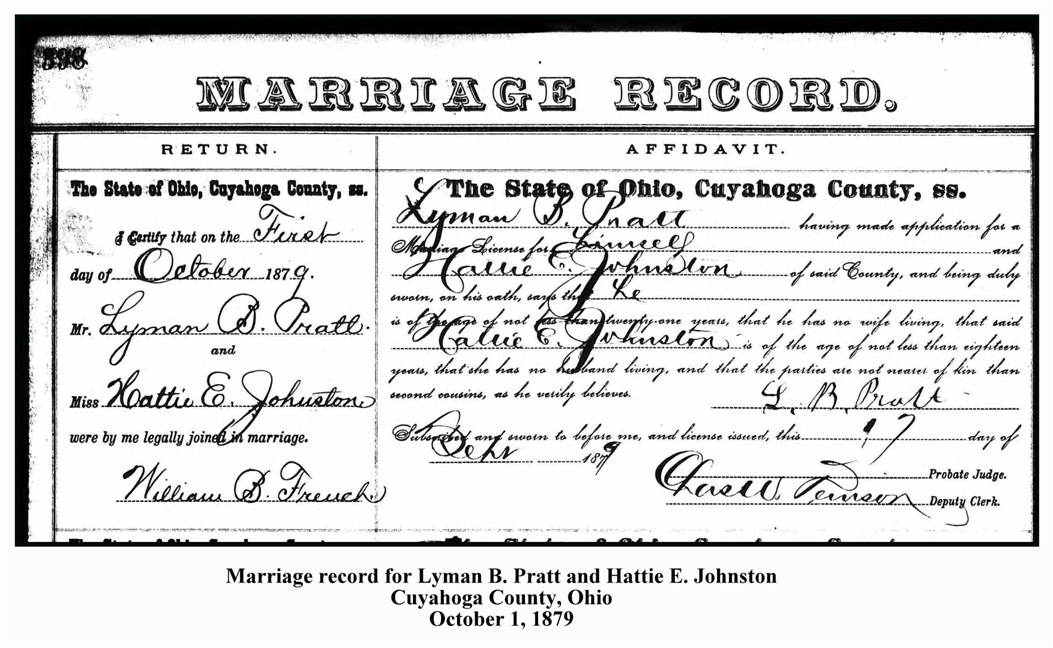 398
MARRIAGE RECORD.
RETURN.
The State of Ohio, Cuyahoga County, ss.
I Certify that on the First
day of October 1879.
Mr. Lyman B. Pratt.
and
Miss Hattie E. Johnston
were by me legally joined in marriage.
William B. French
AFFIDAVIT.
The State of Ohio, Cuyahoga County, ss.
Lyman B. Pratt having made application for a
Marriage License for himself and
Hattie E. Johnston of said County, and being duly
sworn, on his oath, says that he
is of the age of not less than twenty-one years, that he has no wife living, that said
Hattie E. Johnston is of the age of not less than eighteen
years, that she has no husband living, and that the parties are not nearer of kin than
second cousins, as he verily believes.
L. B. Pratt
Subscribed and sworn to before me, and license issued, this 17 day of
Sept 1879
Probate Judge.
Chas W. Deputy Clerk.
Marriage record for Lyman B. Pratt and Hattie E. Johnston
Cuyahoga County, Ohio
October 1, 1879